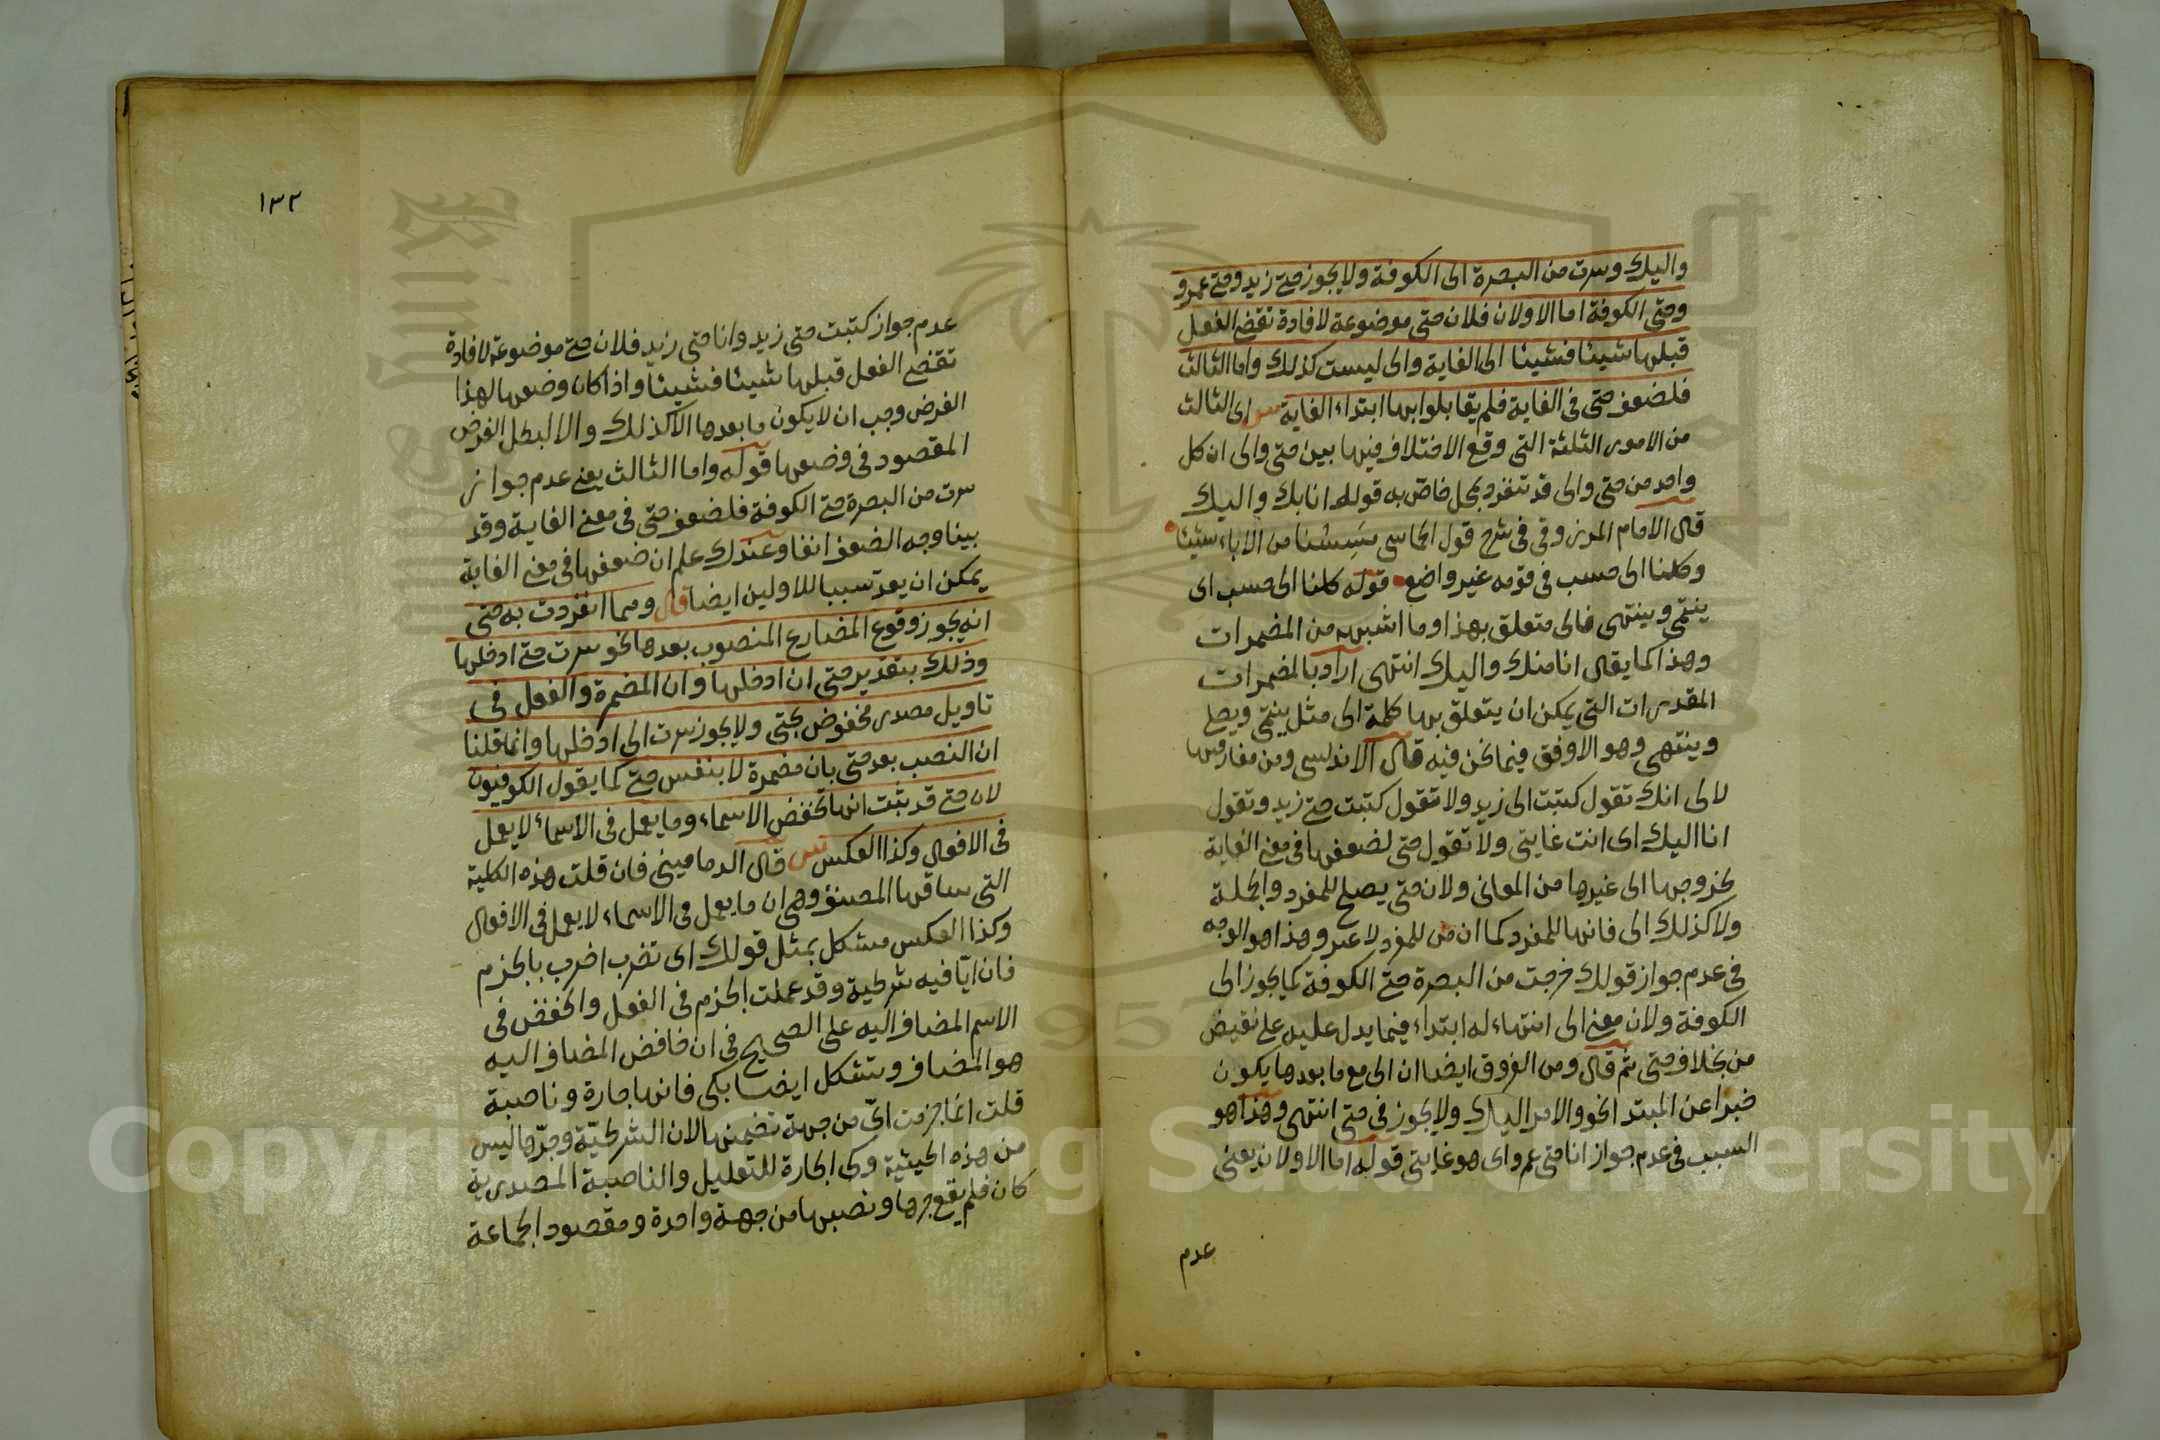 واليك وسرت من البصرة الى الكوفة ولا يجوز حتى زيد وحتى عمرو
وحتى الكوفة اما الاولان فلان حتى موضوعة لافادة تقضى الفعل
قبلها شيئا فشيئا الى الغاية والى ليست كذلك واما الثالث
فلضعف حتى في الغاية فلم يقابلوا بها ابتداء الغاية ش اى الثالث
من الامور الثلثة التى وقع الاختلاف فيها بين حتى والى ان كل
واحد من حتى والى قد تنفرد بمحل خاص به قوله انا بك واليك
قال الامام المرزوقى فى شرح قول الحماسى مسسنا من الاباء شيئا
وكلنا الى حسب فى قومه غير واضع قوله كلنا الى حسب اى
ينتمى وينتهى فالى متعلق بهذا وما اشبهه من المضمرات
وهذا كما يقال انا منك واليك انتهى اراد بالمضمرات
المقدرات التى يمكن ان يتعلق بها كلمة الى مثل ينتمى ويصل
وينتهى وهو الاوفق فيما نحن فيه قال الاندلسى ومن مفارقتها
لالى انك تقول كتبت الى زيد ولا تقول كتبت حتى زيد وتقول
انا اليك اى انت غايتى ولا تقول حتى لضعفها فى معنى الغاية
بخروجها الى غيرها من المعانى ولان حتى يصلح للمفرد والجملة
ولا كذلك الى فانها للمفرد كما ان من للمفرد لا غير وهذا هو الوجه
فى عدم جواز قولك خرجت من البصرة حتى الكوفة كما يجوز الى
الكوفة ولان معنى الى انتهاء له ابتداء فيما يدل عليه على نقيض
من بخلاف حتى ثم قال ومن الفروق ايضا ان الى مع ما بعدها يكون
خبرا عن المبتدا نحو والامر اليك ولا يجوز فى حتى انتهى وهذا هو
السبب فى عدم جواز انا حتى عمرو اى هو غايتى قوله اما الاولان يعنى
عدم
١٣٢
عدم جواز كتبت حتى زيد وانا حتى زيد فلان حتى موضوعة لافادة
تقضى الفعل قبلها شيئا فشيئا واذا كان وضعها لهذا
الغرض وجب ان لا يكون ما بعدها الا كذلك والا لبطل الغرض
المقصود فى وضعها قوله واما الثالث يعنى عدم جواز
سرت من البصرة حتى الكوفة فلضعف حتى فى معنى الغاية وقد
بينا وجه الضعف انفا وعندك علم ان ضعفها فى معنى الغاية
يمكن ان يعد سببا للاولين ايضا قال ومما انفردت به حتى
انه يجوز وقوع المضارع المنصوب بعدها نحو سرت حتى ادخلها
وذلك بتقدير حتى ان ادخلها وان المضمرة والفعل فى
تاويل مصدر مخفوض بحتى ولا يجوز سرت الى ادخلها وانما قلنا
ان النصب بعد حتى بان مضمرة لا بنفس حتى كما يقول الكوفيون
لان حتى قد ثبت انها تخفض الاسماء وما يعمل فى الاسماء لا يعمل
فى الافعال وكذا العكس ش قال الدمامينى فان قلت هذه الكلية
التى ساقها المصنف وهى ان ما يعمل فى الاسماء لا يعمل فى الافعال
وكذا العكس مشكل بمثل قولك اى تضرب اضرب بالجزم
فان ايّا فيه شرطية وقد عملت الجزم فى الفعل والخفض فى
الاسم المضاف اليه على الصحيح فى ان خافض المضاف اليه
هو المضاف ويشكل ايضا بكى فانها جارة وناصبة
قلت انما جزمت اىّ من جهة تضمنها لان الشرطيّة وجرّها ليس
من هذه الحيثية وكى الجارة للتعليل والناصبة المصدرية
كان فلم يقع جرها ونصبها من جهة واحدة ومقصود الجماعة
Copyright © King Saud University